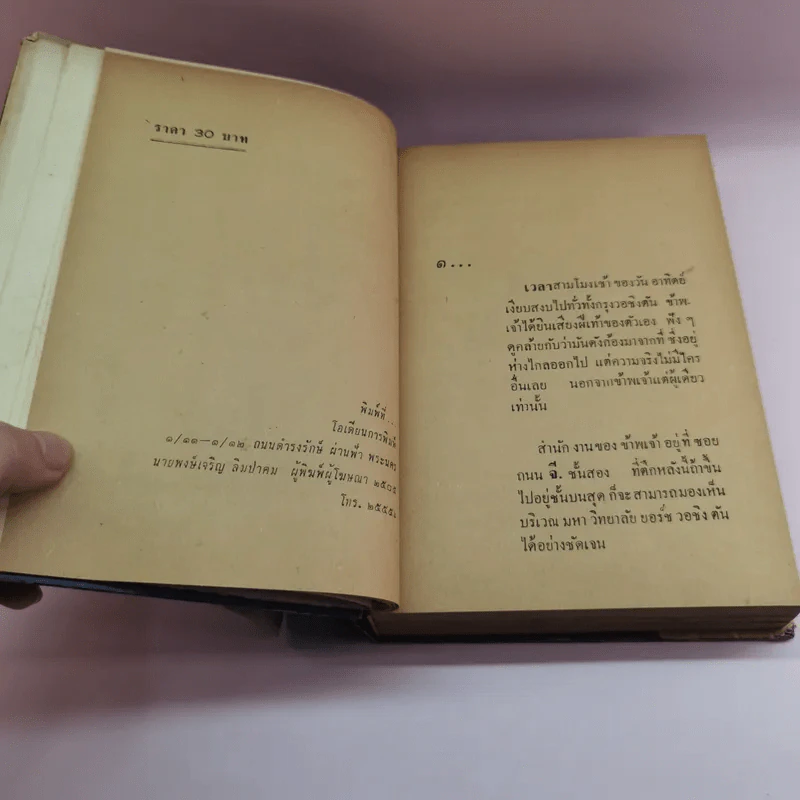 ราคา 30 บาท
พิมพ์ที่ ...
โอเดียนการพิมพ์
๑/๑๑—๑/๑๒ ถนนดำรงรักษ์ ผ่านฟ้า พระนคร
นายพงษ์เจริญ ลิมปาคม ผู้พิมพ์ผู้โฆษณา ๒๕๐๕
โทร. ๒๕๕๕๑
๑...
เวลาสามโมงเช้า ของวัน อาทิตย์
เงียบสงบไปทั่วทั้งกรุงวอชิงตัน ข้าพ-
เจ้าได้ยินเสียงฝีเท้าของตัวเอง ฟัง ๆ
ดูคล้ายกับว่ามันดังก้องมาจากที่ ซึ่งอยู่
ห่างไกลออกไป แต่ความจริงไม่มีใคร
อื่นเลย นอกจากข้าพเจ้าแต่ผู้เดียว
เท่านั้น
สำนัก งานของ ข้าพเจ้า อยู่ที่ ซอย
ถนน จี. ชั้นสอง ที่ตึกหลังนี้ถ้าขึ้น
ไปอยู่ชั้นบนสุด ก็จะ สามารถมองเห็น
บริเวณ มหา วิทยาลัย ยอร์ช วอชิง ตัน
ได้อย่างชัดเจน